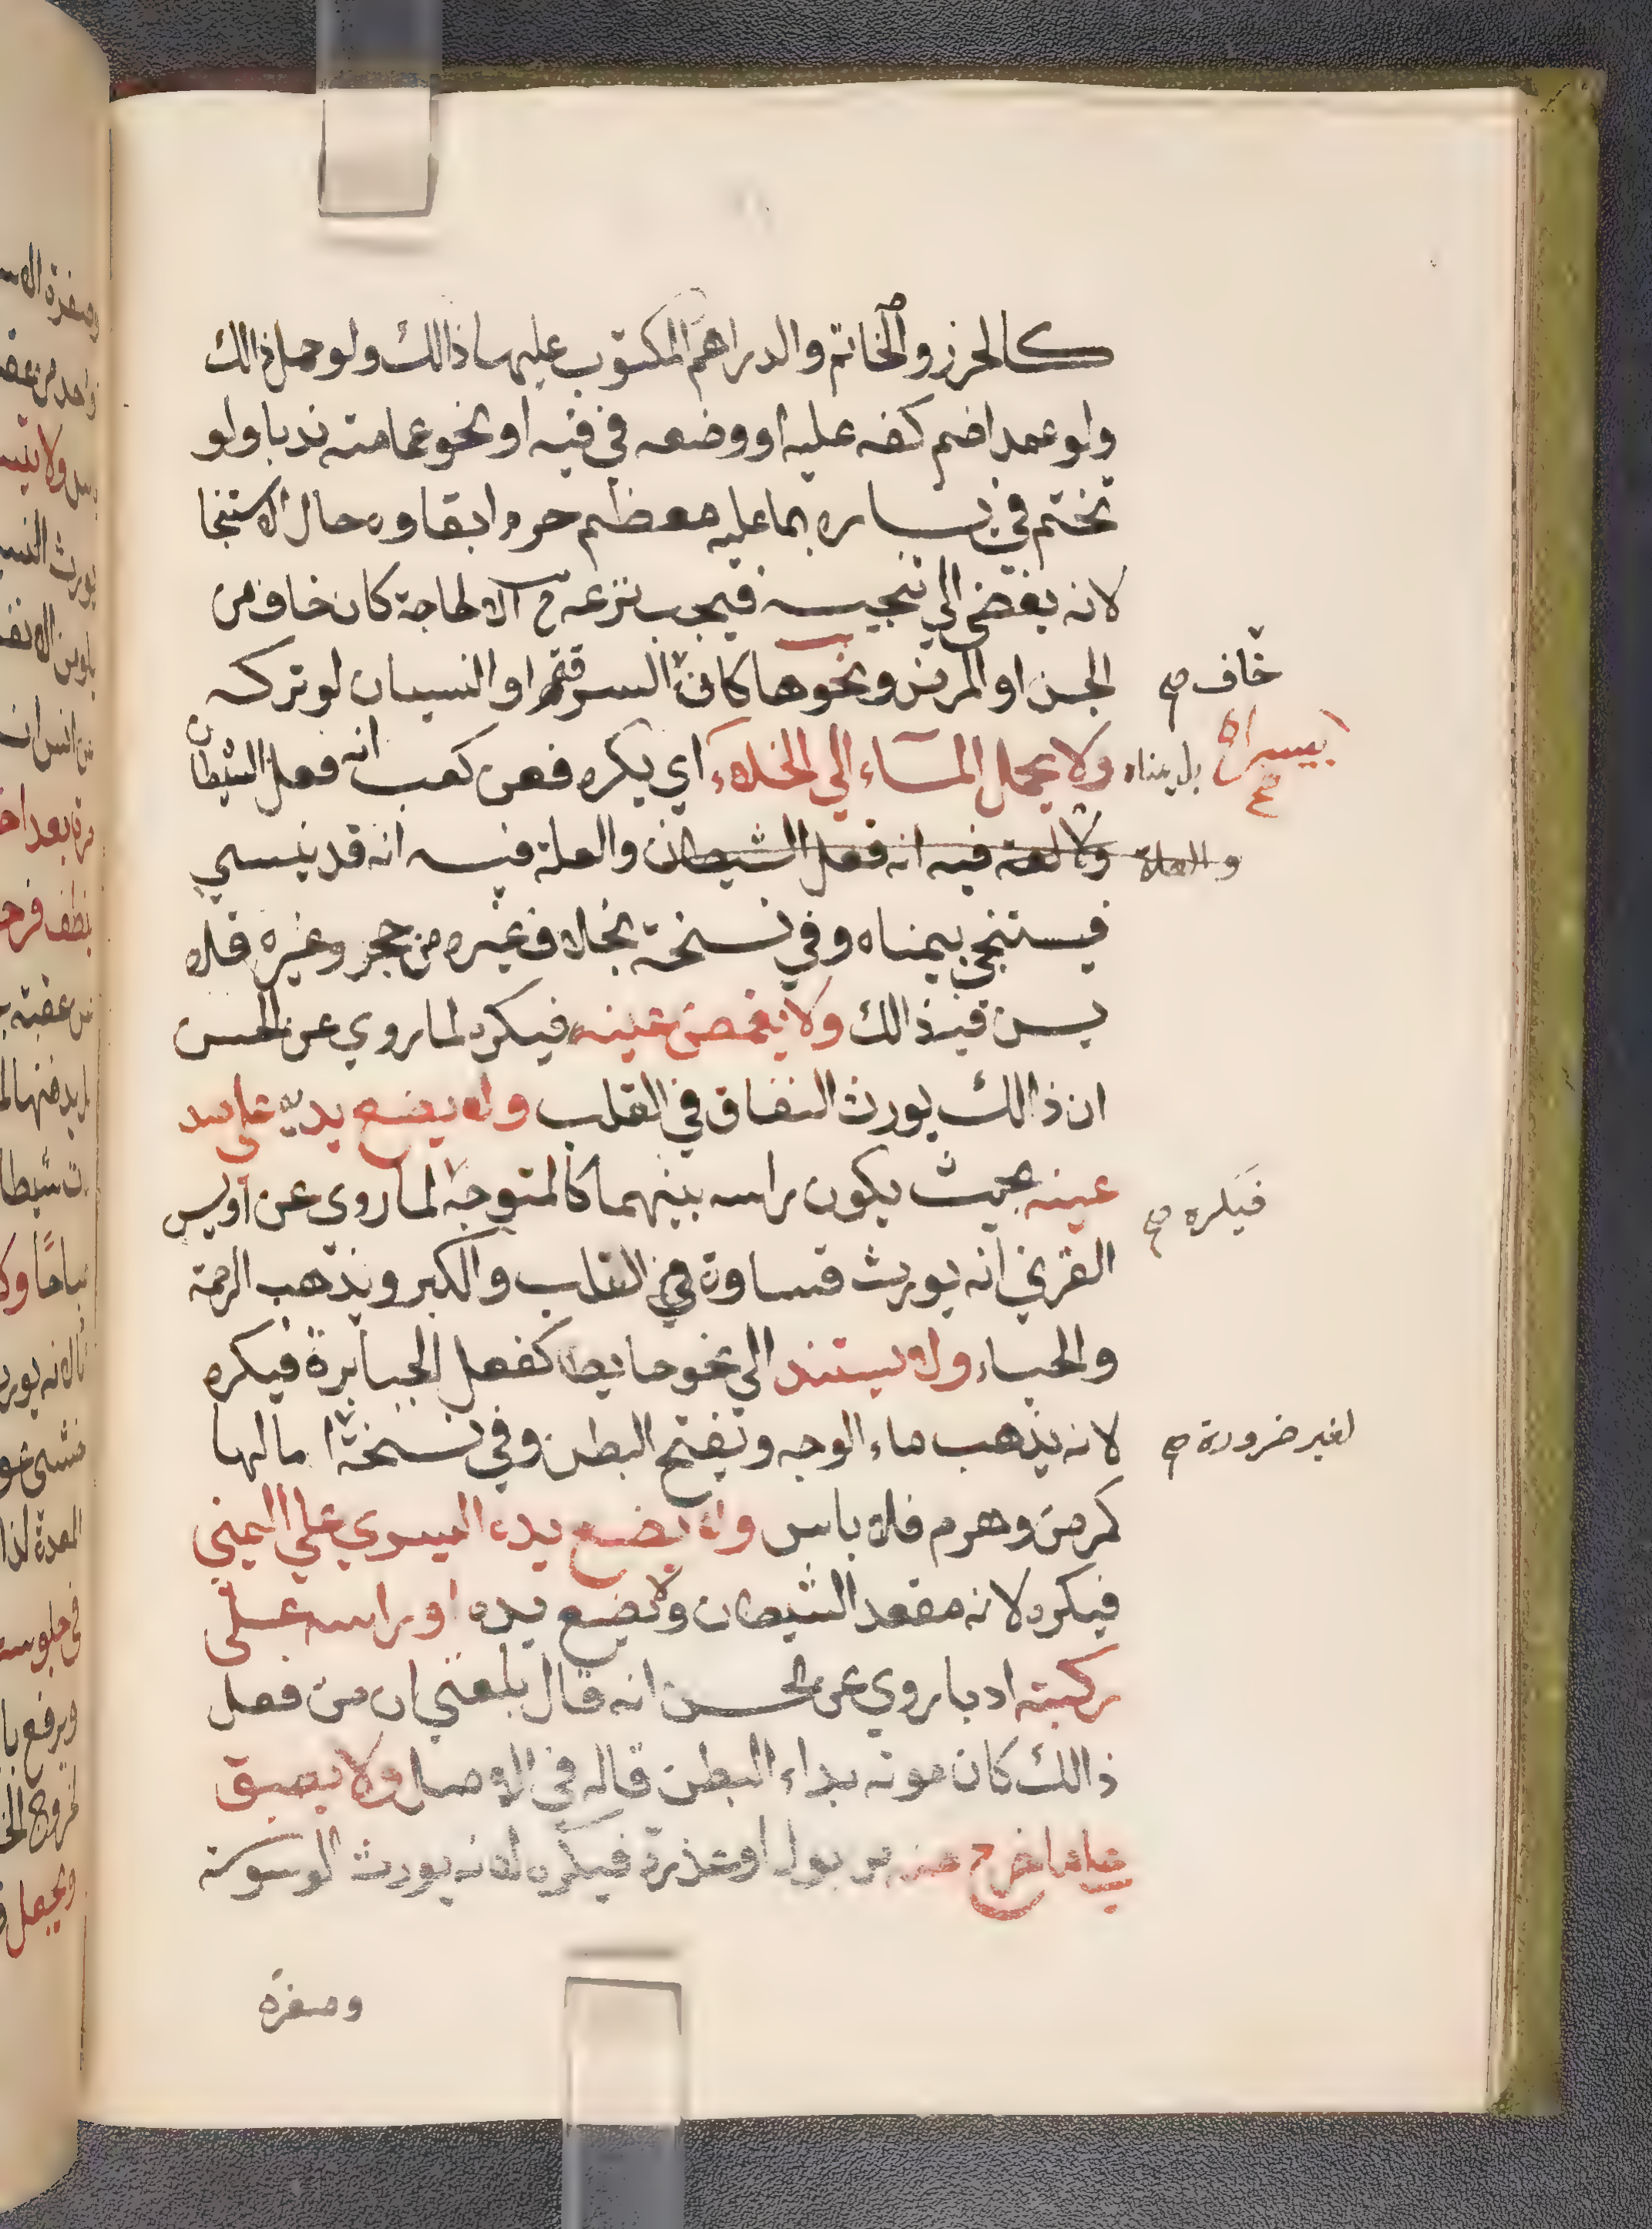 كالحرز والخاتم والدراهم المكتوب عليها ذالك ولو حمل ذالك
ولو عمدا ضم كفه عليه او وضعه في فيه او نحو عمامته ندبا ولو
تختم في يساره بما عليه معظم حرم ابقاوه حال الاستنجا
لانه يفضي الي تنجيسه فيجب نزعه ح الا لحاجة كان خاف من
الجن او المرض ونحوها كان السرقة او النسيان لو تركه
خاف صح
ولا يحمل الماء الي الخلاء اي يكره فعن كعب انه فعل الشيطان
بيسراه صح
بل يمناه
فيه انه فعل الشيطان والعلة فيه انه قد ينسي
والعلة
فيستنجي بيمناه وفي نسخة بخلاف غيره من حجر وغيره فلا
يسن فيه ذالك ولا يغمض عينه فيكره لما روي عن الحسن
ان ذالك يورث النفاق في القلب ولا يضع يديه علي
عينه بحيث يكون راسه بينهما كالمتوجه لما روي عن اويس
فيكره صح
القرني انه يورث قساوة في القلب والكبر ويذهب الرحمة
والحياء ولا يستند الي نحو حايط كفعل الجبابرة فيكره
لانه يذهب ماء الوجه وينفتح البطن وفي نسخة اما لها
لغير ضرورة صح
كمرض وهرم فلا باس ولا يضع يده اليسري علي اليمني
فيكره لانه مقعد الشيطان ولا يضع يده او راسه علي
ركبته ادبا روي عن الحسن انه قال بلغني ان من فعل
ذالك كان موته بداء البطن قاله في الاصل ولا يبصق
علي ما خرج منه من بول او عذرة فيكره لانه يورث الوسوسة
وصفرة